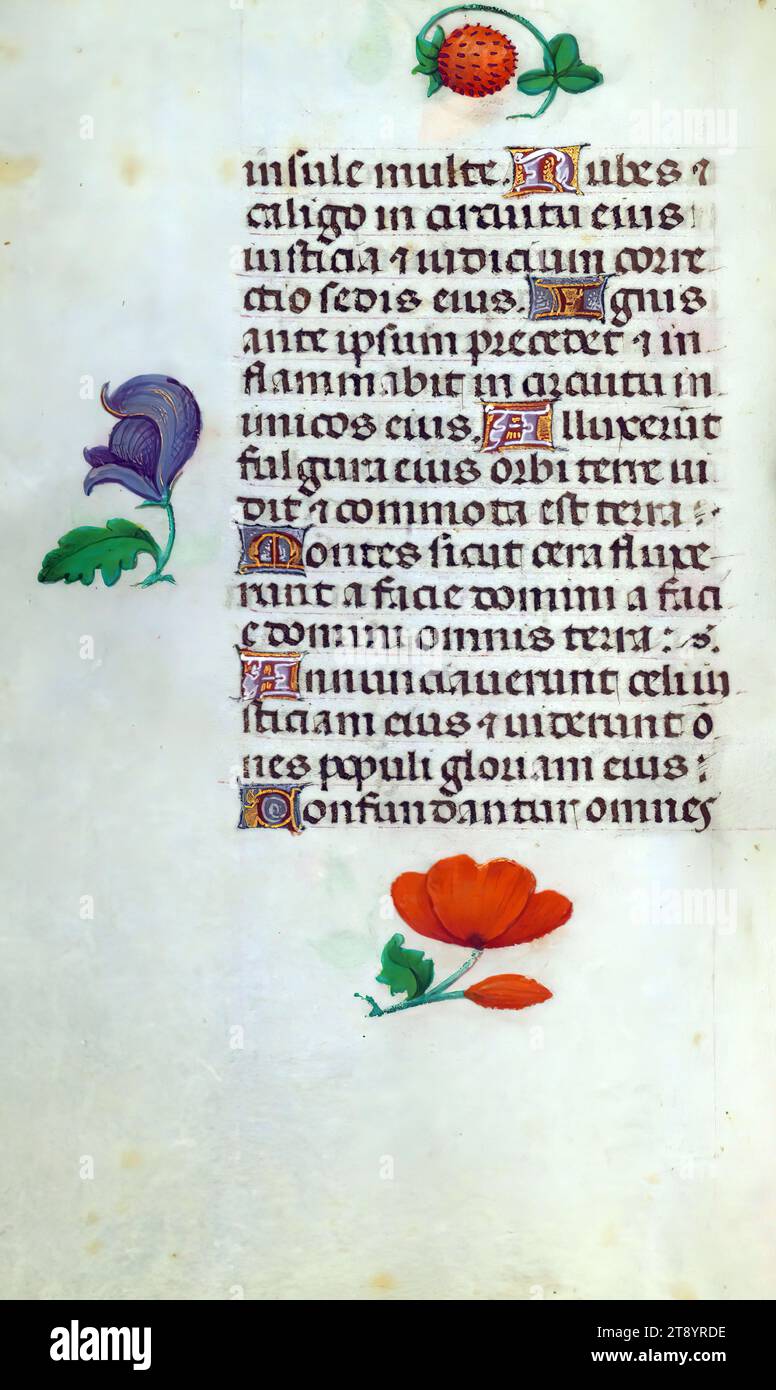 insule multe. Nubes ⁊
caligo in circuitu eius
iusticia ⁊ iudicium corre
ctio sedis eius. Ignis
ante ipsum precedet ⁊ in
flammabit in circuitu in
imicos eius. Alluxerut
fulgura eius orbi terre ui
dit ⁊ commota est terra :
Montes sicut cera fluxe
runt a facie domini a faci
e domini omnis terra : s.
Annunciauerunt celi iu
sticiam eius ⁊ uiderunt o
nes populi gloriam eius :
Confundantur omnes
alamy
Image ID: 2T8YRDE
www.alamy.com